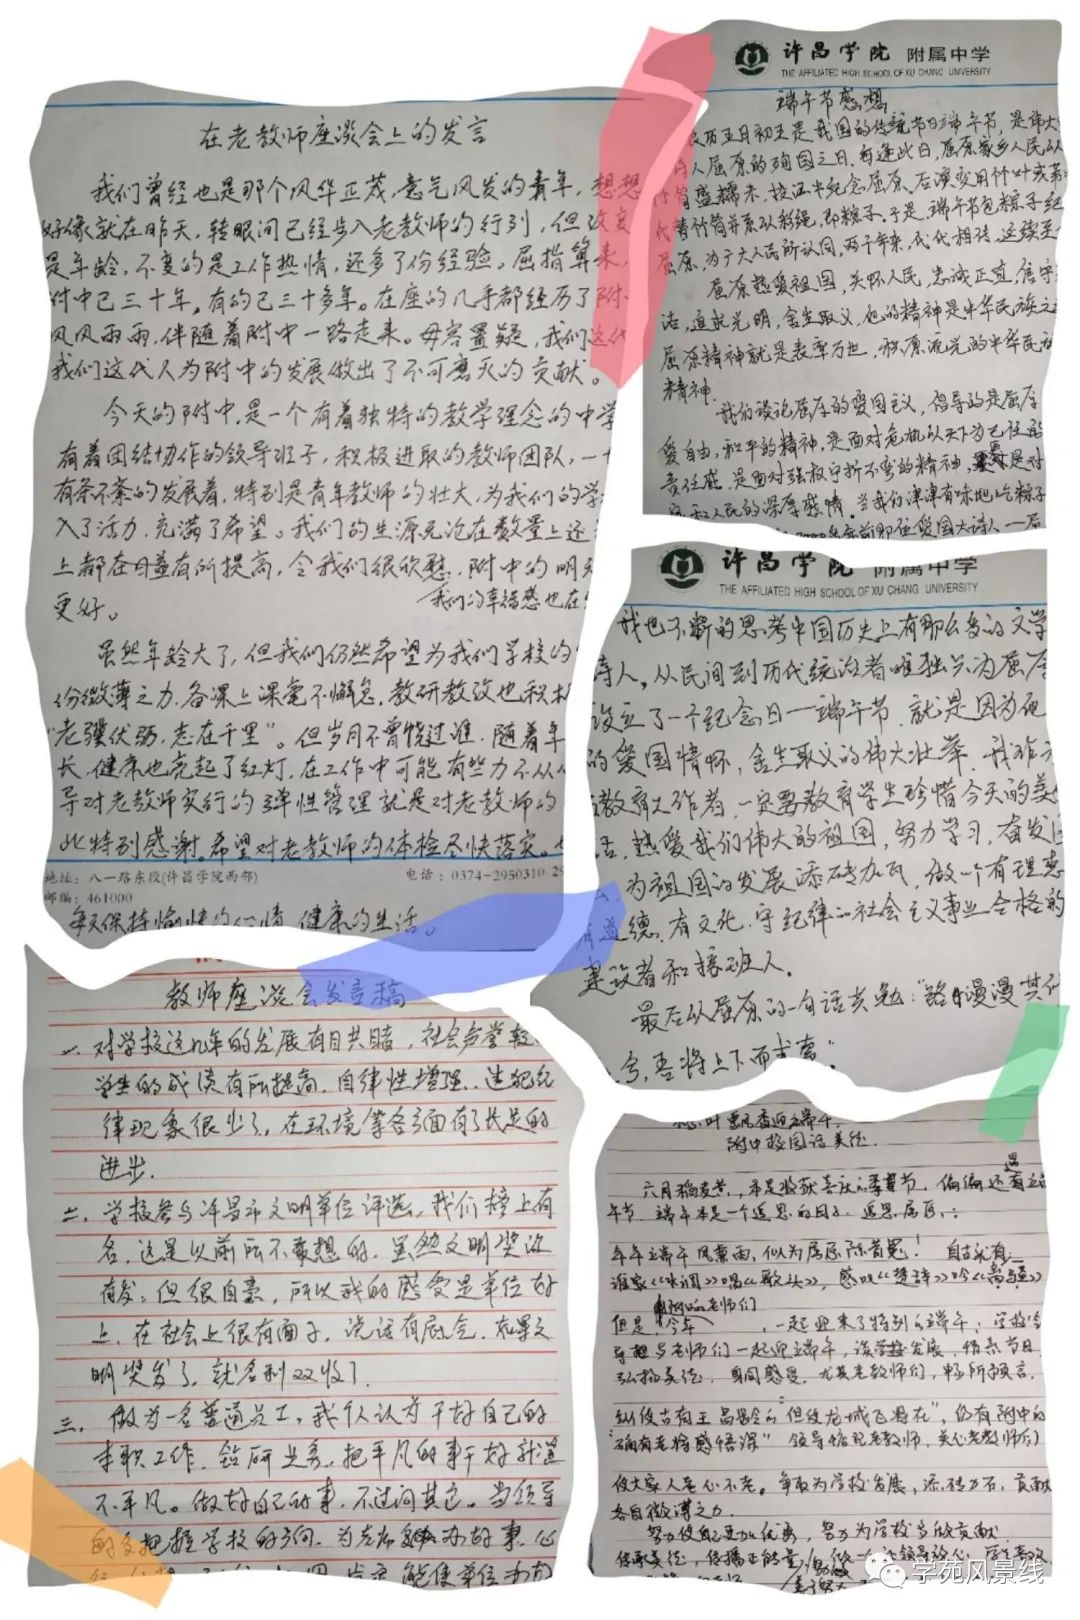 在老教师座谈会上的发言
我们曾经也是那个风华正茂、意气风发的青年，想想
好像就在昨天，转眼间已经步入老教师的行列，但改变
是年龄，不变的是工作热情，还多了份经验。屈指算来，
附中已三十年，有的已三十多年。在座的几乎都经历了附
风风雨雨，伴随着附中一路走来。毋容置疑，我们这代
我们这代人为附中的发展做出了不可磨灭的贡献。
今天的附中，是一个有着独特的教学理念的中学
有着团结协作的领导班子，积极进取的教师团队，一
有条不紊的发展着，特别是青年教师的壮大，为我们的学
入了活力，充满了希望。我们的生源无论在数量上还
上都在日益有所提高，令我们很欣慰，附中的明
更好。
我们的幸福感也在
虽然年龄大了，但我们仍然希望为我们学校的
份微薄之力，备课上课毫不懈怠，教研教改也积极
“老骥伏枥，志在千里”。但岁月不曾饶过谁，随着年
长，健康也亮起了红灯，在工作中可能有些力不从
导对老教师实行的弹性管理就是对老教师的
此特别感谢。希望对老教师的体检尽快落实。
地址：八一路东段(许昌学院西邻)
电话：0374-2950310
邮编：461000
保持愉快的心情，健康的生活。
许昌学院 附属中学
THE AFFILIATED HIGH SCHOOL OF XU CHANG UNIVERSITY
端午节感想
农历五月初五是我国的传统节日端午节，是伟大
诗人屈原的殉国之日，每逢此日，屈原家乡人民以
竹筒盛糯米，投江中纪念屈原、后演变用竹叶或苇
代替竹筒并系以彩绳，即粽子，于是，端午节包粽子纪
屈原，为广大人民所认同，两千年来，代代相传，延续至
屈原热爱祖国，关怀人民，忠诚正直，信守
洁，追求光明，舍生取义，他的精神是中华民族之
屈原精神就是表率万世，积厚流光的中华民族
精神．
我们谈论屈原的爱国主义，倡导的是屈原
爱自由，和平的精神，是面对危机以天下为己任的
责任感，是面对强权宁折不弯的精神，是对
和人民的深厚感情。当我们津津有味地吃粽子
年前那位爱国大诗人——屈
许昌学院 附属中学
THE AFFILIATED HIGH SCHOOL OF XU CHANG UNIVERSITY
我也不断的思考中国历史上有那么多的文学
诗人，从民间到历代统治者唯独只为屈原
设立了一个纪念日——端午节，就是因为他
的爱国情怀，舍生取义的伟大壮举，我作为
教育工作者，一定要教育学生珍惜今天的美
活，热爱我们伟大的祖国，努力学习，奋发
为祖国的发展添砖加瓦，做一个有理想
有道德，有文化，守纪律的社会主义事业合格的
建设者和接班人．
最后以屈原的一句话共勉：“路漫漫其
兮，吾将上下而求索”
教师座谈会发言稿
一、对学校这几年的发展有目共睹，社会声誉较
学生的成绩有所提高，自律性增强，违犯纪
律现象很少了，在环境等各方面有了长足的
进步．
二、学校参与许昌市文明单位评选，我们榜上有
名，这是以前所不敢想的，虽然文明奖没
有发；但很自豪，所以我的感受是单位好
上，在社会上很有面子，说话有底气，如果文
明奖发了，就名利双收了．
三、做为一名普通员工，我个人认为干好自己的
本职工作，钻研业务，把平凡的事干好就是
不平凡。做好自己的事，不过问其它。当领导
的多把握学校的方向，为老师多办的事，
能使单位
叶飘香迎端午，
附中校园话美德．
六月稻麦黄，本是收获喜庆的季节，偏偏还遇
午节，端午本是一个追思的日子，追思屈原，：
年年端午风兼雨，似为屈原陈昔冤！自古
谁家唱《歌头》，感叹《楚辞》吟
但是，今年，一起迎来了特别的端午，学校领
导想与老师们一起迎端午，谈学校发展，情系节日
弘扬美德，身同感受，尤其老教师们，畅所预言，
纵使古有王昌龄的“但使龙城飞将在”，仍有附中的
“确有老将感悟深”领导搭配老教师，关心老教师们
使大家人老心不老，争取为学校发展，添砖加瓦，贡献
各自微薄之力．
努力使自己更加优秀，努力为学校多做贡献
传承美德，传播正能量，做一
学苑风景线